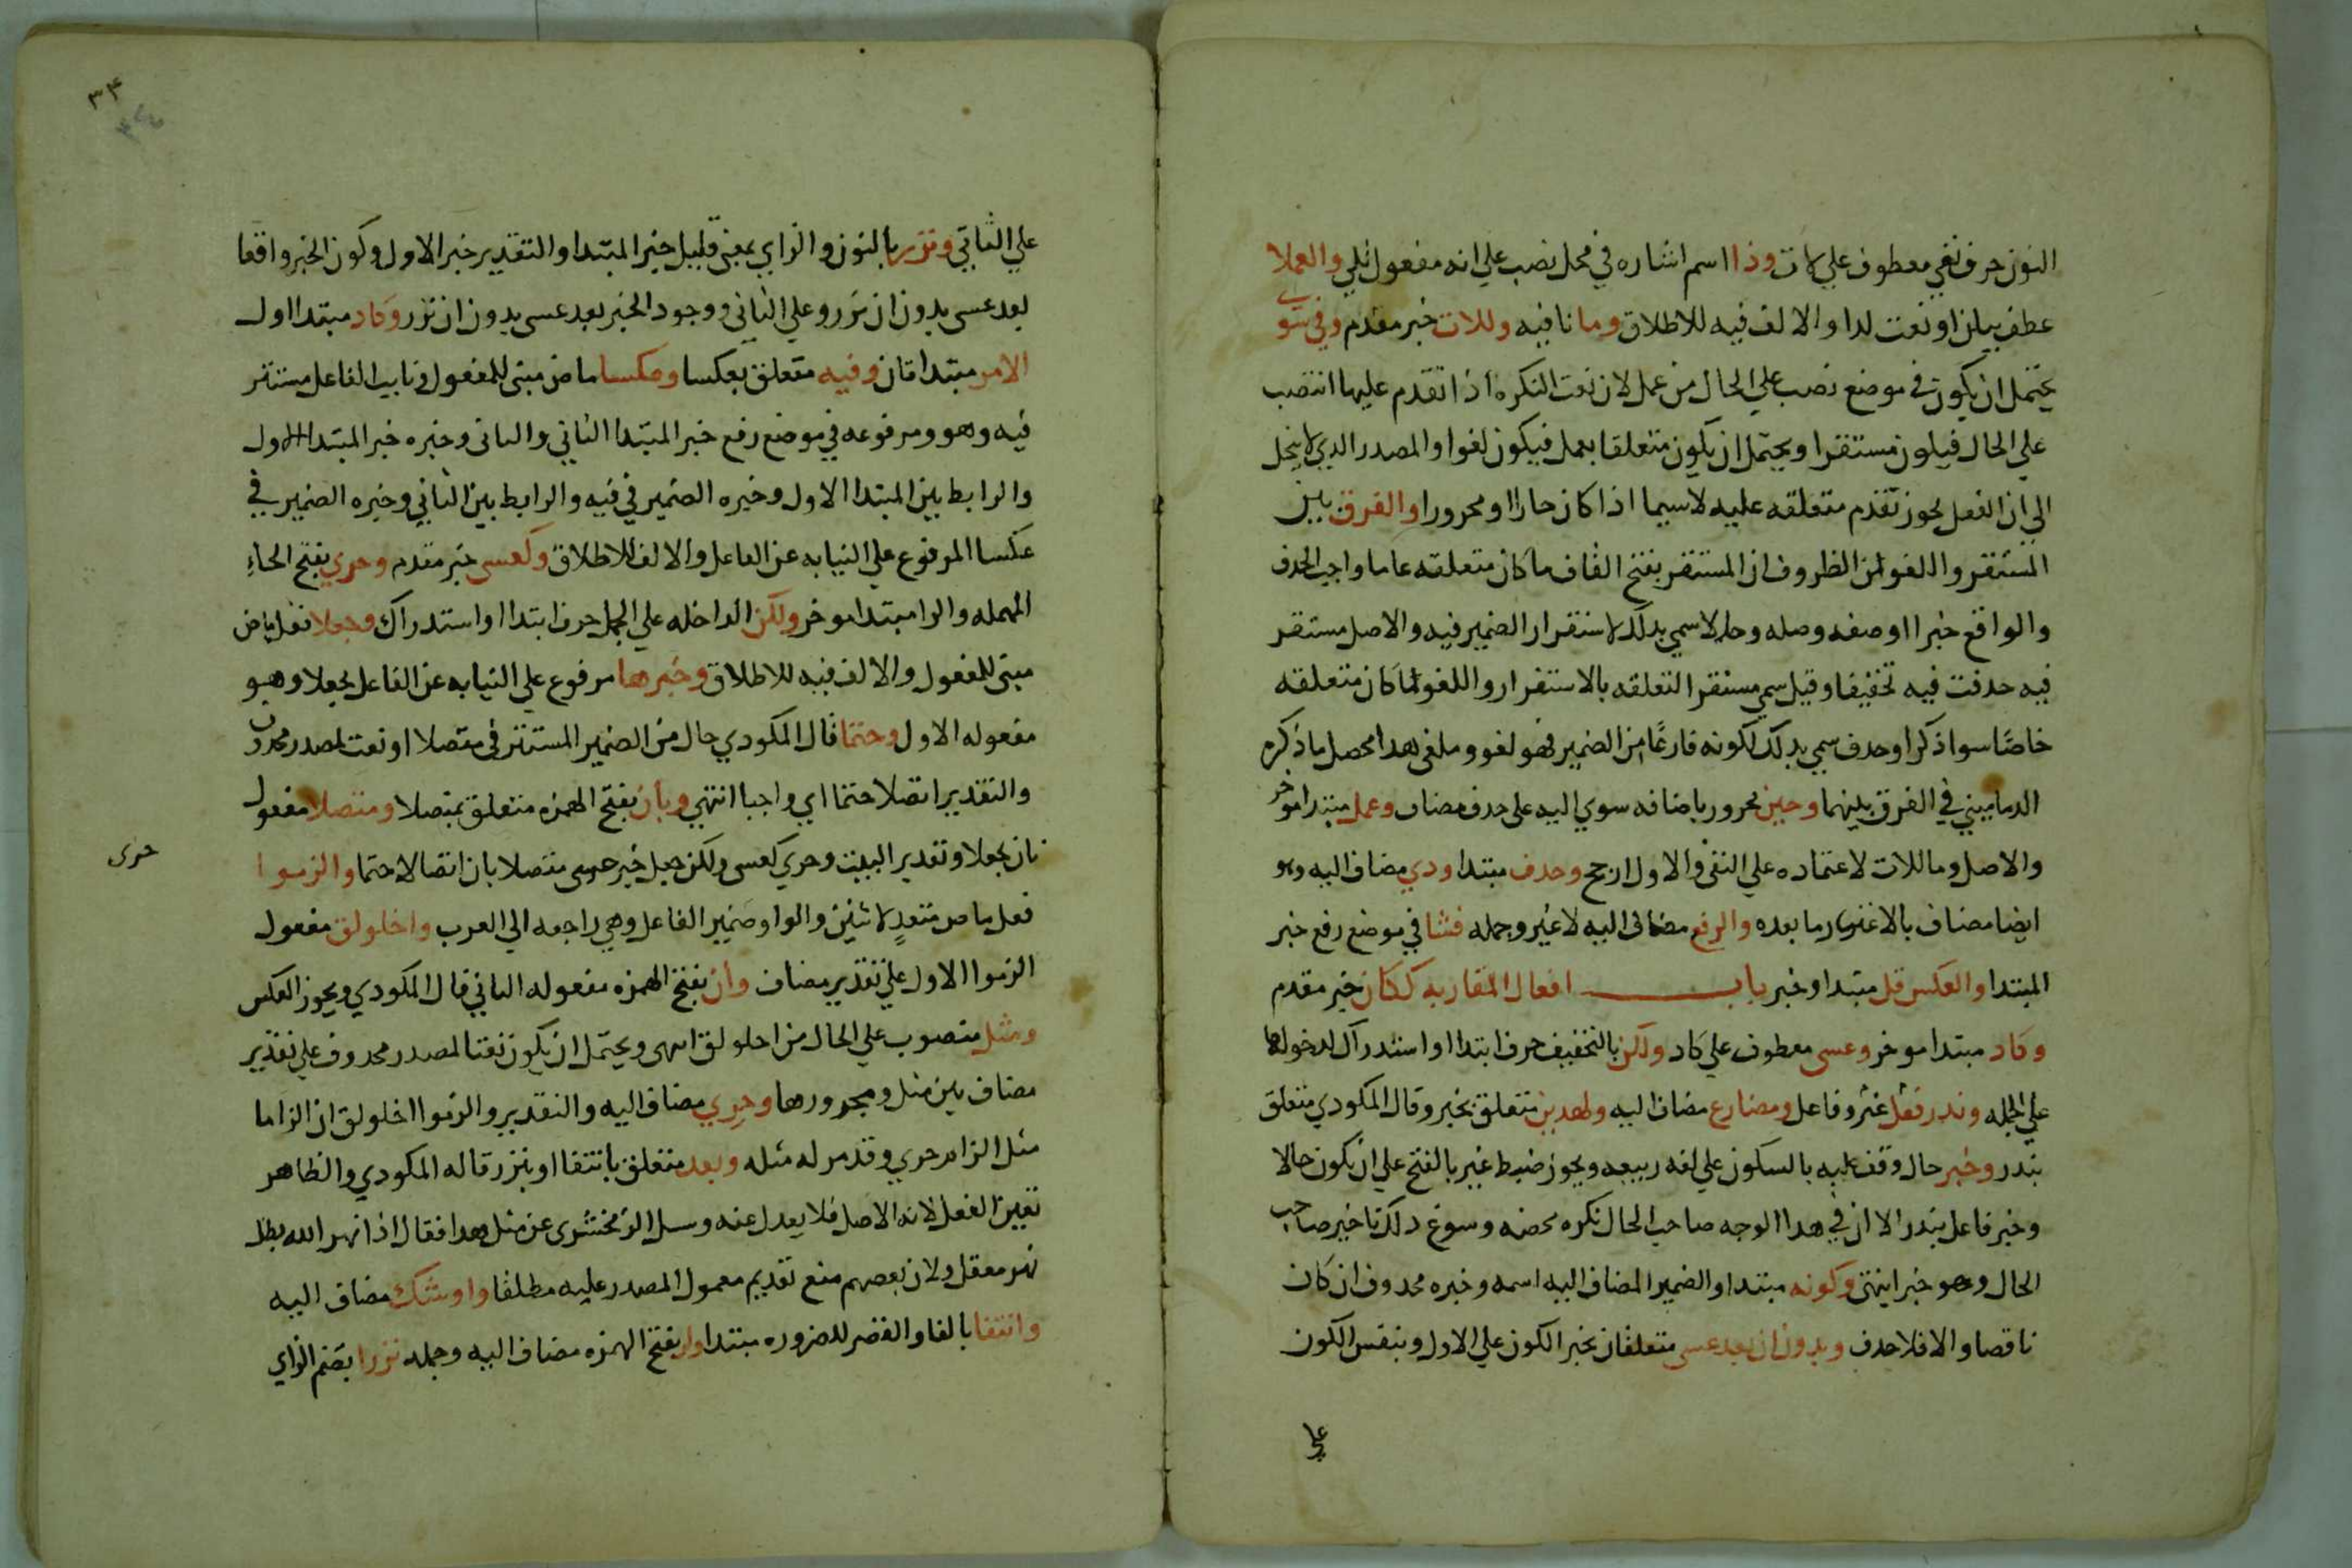 النون حرف نفي معطوف علي لات وذا اسم اشاره في محل نصب علي انه مفعول تلي والعملا
عطف بيان او نعت لدا والالف فيه للاطلاق وما نافيه وللات خبر مقدم وفي سوي
يحتمل ان يكون في موضع نصب علي الحال من عمل لان نعت النكره اذا تقدم عليها انتصب
علي الحال فيكون مستقرا ويحتمل ان يكون متعلقا بعمل فيكون لغوا والمصدر الدي لا ينحل
الي ان الفعل يجوز تقدم متعلقه عليه لاسيما اذا كان جارا او مجرورا والفرق بين
المستقر واللغو من الظروف ان المستقر بفتح القاف ما كان متعلقه عاما واجب الحدف
والواقع خبرا او صفه وصله وحالا سمي بدلك لاستقرار الضمير فيه والاصل مستقر
فيه حدفت فيه تخفيفا وقيل سمي مستقرا لتعلقه بالاستقرار واللغو لما كان متعلقه
خاصًا سوا ذكر او حدف سمي بدلك لكونه فارغًا من الضمير فهو لغو وملغي هدا محصل ما ذكره
الدماميني في الفرق بينهما وحين مجرور باضافه سوي اليه علي حدف مضاف وعمل مبتدا موخر
والاصل وما للات لاعتماده علي النفي والاول ارجح وحدف مبتدا ودي مضاف اليه وهو
ايضا مضاف بالاعتبار ما بعده والرفع مضاف اليه لا غير وجمله فشا في موضع رفع خبر
المبتدا والعكس قل مبتدا وخبر باب افعال المقاربه ككان خبر مقدم
وكاد مبتدا موخر وعسي معطوف علي كاد ولكن بالتخفيف حرف ابتدا او استدراك لدخولها
علي الجمله وندر فعل غير وفاعل ومضارع مضاف اليه ولهدين متعلق بخبر وقال المكودي متعلق
بندر وخبر حال وقف عليه بالسكون علي لغه ربيعه ويجوز ضبط غير بالفتح علي ان يكون حالا
وخبر فاعل بندر الا ان في هدا الوجه صاحب الحال نكره محضه وسوغ دلك تاخير صاحب
الحال وهو خبر اينتهي وكونه مبتدا والضمير المضاف اليه اسمه وخبره محدوف ان كان
ناقصا والا فلا حدف وبدون ان بعد عسي متعلقان بخبر الكون علي الاول وبنفس الكون
علي
٣٤
علي الثاني ونزر بالنون والزاي بمعني قليل خبر المبتدا والتقدير خبر الاول وكون الخبر واقعا
بعد عسي بدون ان نزر وعلي الثاني ووجود الخبر بعد عسي بدون ان نزر وكاد مبتدا اول
الامر مبتدا ثان وفيه متعلق بعكسا وعكسا ماض مبني للمفعول ونايب الفاعل مستتر
فيه وهو ومرفوعه في موضع رفع خبر المبتدا الثاني والثاني وخبره خبر المبتدا الاول
والرابط بين المبتدا الاول وخبره الضمير في فيه والرابط بين الثاني وخبره الضمير في
عكسا المرفوع علي النيابه عن الفاعل والالف للاطلاق وكعسي خبر مقدم وحري بفتح الحاءِ
المهمله والرا مبتدا موخر ولكن الداخله علي الجمل حرف ابتدا او استدراك وجعلا فعل ماض
مبني للمفعول والالف فيه للاطلاق وخبرها مرفوع علي النيابه عن الفاعل بجعلا وهو
مفعوله الاول وحتما قال المكودي حال من الضمير المستتر في متصلا او نعت لمصدر محدوف
والتقدير اتصلا حتما اي واجبا انتهي وبان بفتح الهمزه متعلق بمتصلا ومتصلا مفعول
ثان بجعلا وتقدير البيت وحري كعسي ولكن جعل خبر عسي متصلا بان اتصالا حتما والزموا
حرى
فعل ماض متعدٍ لاثنين والواو ضمير الفاعل وهي راجعه الي العرب واخلولق مفعول
الزموا الاول علي تقدير مضاف وان بفتح الهمزه مفعوله الثاني قال المكودي ويجوز العكس
ومثل منصوب علي الحال من اخلولق انتهي ويحتمل ان يكون نعتا لمصدر محدوف علي تقدير
مضاف بين مثل ومجرورها وحري مضاف اليه والتقدير والزموا اخلولق ان الزاما
مثل الزام حري وقد مر له مثله وبعد متعلق بانتفا او بنزر قاله المكودي والظاهر
تعيين الفعل لانه الاصل فلا يعدل عنه وسيل الزمخشري عن مثل هدا فقال اذا نهر الله بطل
نهر معقل ولان بعضهم منع تقديم معمول المصدر عليه مطلقا واوشك مضاف اليه
وانتفا بالفا والقصر للضروره مبتدا وان بفتح الهمزه مضاف اليه وجمله نزرا بضم الزاي